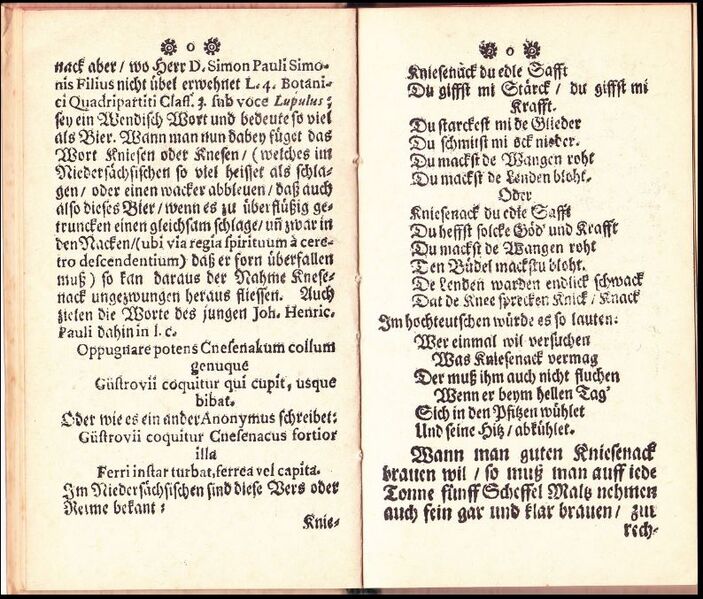 o
nack aber / wo Herr D. Simon Pauli Simo-
nis Filius nicht übel erwehnet L. 4. Botani-
ci Quadripartiti Class. 3. sub voce Lupulus;
sey ein Wendisch Wort und bedeute so viel
als Bier. Wann man nun dabey füget das
Wort Kniesen oder Knesen / (welches im
Niedersächsischen so viel heisset als schla-
gen / oder einen wacker abbleuen / daß auch
also dieses Bier / wenn es zu überflüßig ge-
truncken einen gleichsam schlage / uñ zwar in
den Nacken / (ubi via regia spirituum à cere-
tro descendentium) daß er forn überfallen
muß) so kan daraus der Nahme Knese-
nack ungezwungen heraus fliessen. Auch
zielen die Worte des jungen Joh. Henric.
Pauli dahin in l. c.
Oppugnare potens Cnesenakum collum
genuque
Güstrovii coquitur qui cupit, usque
bibat.
Oder wie es ein ander Anonymus schreibet:
Güstrovii coquitur Cnesenacus fortior
illa
Ferri instar turbat, ferrea vel capita.
Im Niedersächsischen sind diese Vers oder
Reime bekant:
Knie-
o
Kniesenäck du edle Safft
Du giffst mi Stärck / du giffst mi
Krafft.
Du starckest mi de Glieder
Du schmitst mi ock nieder.
Du mackst de Wangen roht
Du mackst de Lenden bloht.
Oder
Kniesenack du edle Safft
Du heffst solcke Göd' und Krafft
Du mackst de Wangen roht
Den Büdel mackstu bloht.
De Lenden warden endlick schwack
Dat de Knee sprecken Knick / Knack
Im hochteutschen würde es so lauten:
Wer einmal wil versuchen
Was Kniesenack vermag
Der muß ihm auch nicht fluchen
Wenn er beym hellen Tag'
Sich in den Pfitzen wühlet
Und seine Hitz / abkühlet.
Wann man guten Kniesenack
brauen wil / so muß man auff iede
Tonne fünff Scheffel Maltz nehmen
auch fein gar und klar brauen / zur
rech-